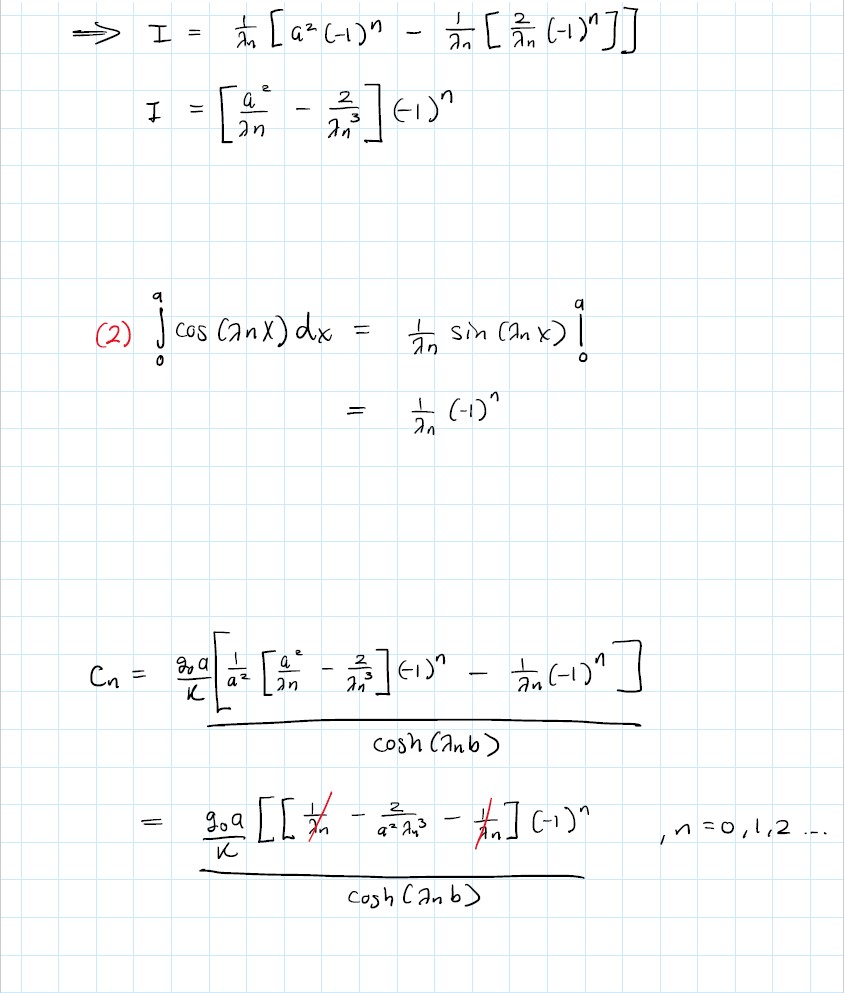 ⟹ I = 1/λn [ a² (-1)ⁿ - 1/λn [ 2/λn (-1)ⁿ ] ]
I = [ a²/λn - 2/λn³ ] (-1)ⁿ
(2) ∫₀ᵃ cos (λn x) dx = 1/λn sin (λn x) |₀ᵃ
= 1/λn (-1)ⁿ
Cn = g₀a/K [ 1/a² [ a²/λn - 2/λn³ ] (-1)ⁿ - 1/λn (-1)ⁿ ]
cosh (λn b)
= g₀a/K [ [ 1/λn - 2/a²λn³ - 1/λn ] (-1)ⁿ , n = 0, 1, 2 ...
cosh (λn b)